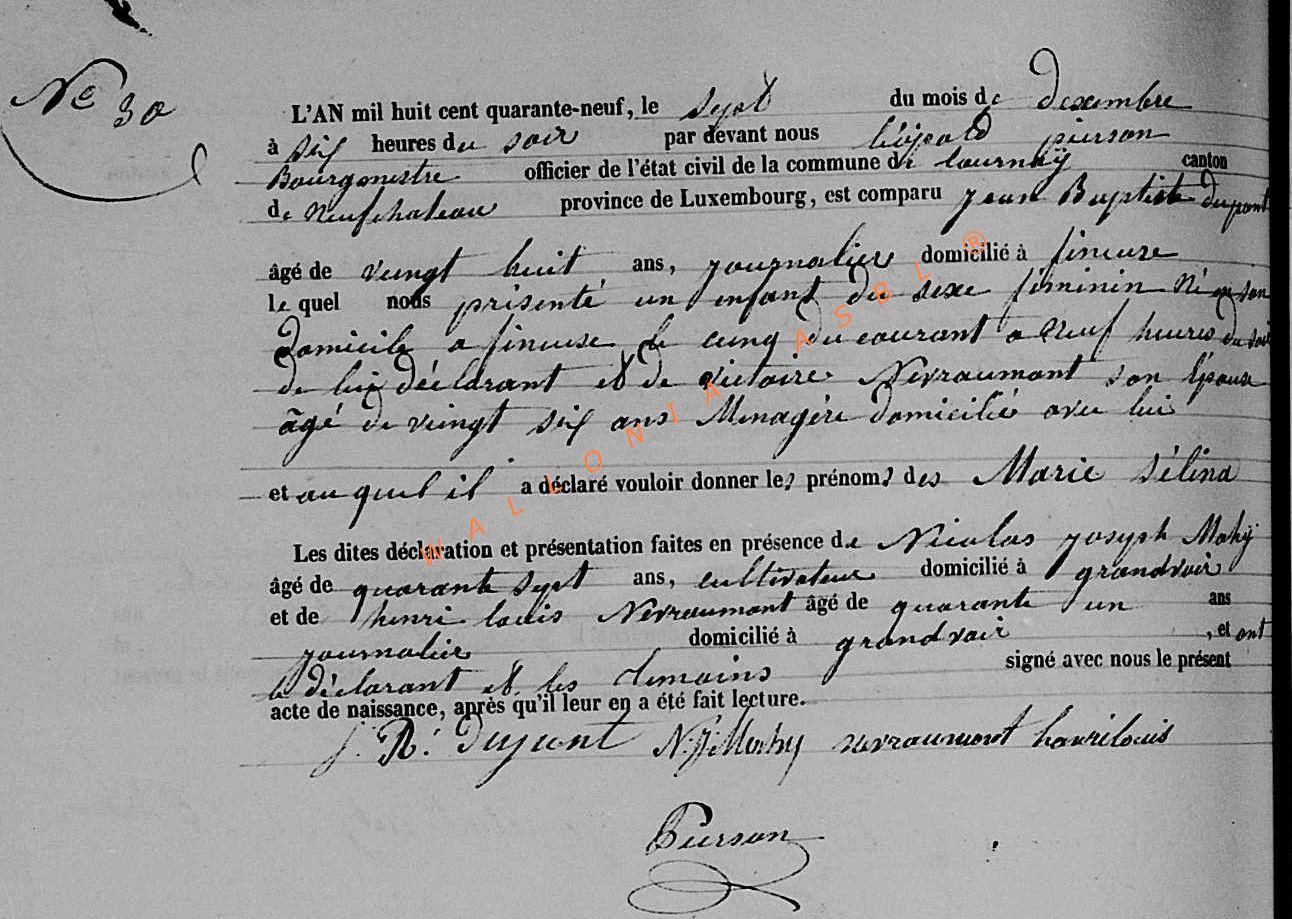 Ne 30
L'AN mil huit cent quarante-neuf, le sept du mois de decembre
à six heures du soir par devant nous léopold pierson
Bourgmestre officier de l'état civil de la commune de tournay canton
de neufchateau province de Luxembourg, est comparu jean Baptiste dupont
âgé de vingt huit ans, journalier domicilié à fineuse
le quel nous présenté un enfant du sexe féminin Né en son
domicile a fineuse le cinq du courant a neuf heures du soir
de lui déclarant et de victoire Nevraumont son épouse
âgé de vingt six ans Menagère domicilié avec lui
et auquel il a déclaré vouloir donner les prénoms des Marie Sélina
Les dites déclaration et présentation faites en présence de Nicolas joseph Mahÿ
âgé de quarante sept ans, cultivateur domicilié à grandvoir
et de henri louis Nevraumont âgé de quarante un ans
journalier domicilié à grandvoir , et ont
le déclarant et les temoins signé avec nous le présent
acte de naissance, après qu'il leur en a été fait lecture.
j. B. Dupont N. J. Mahy nevraumont henri louis
Pierson
WALLONIA ASBL ®